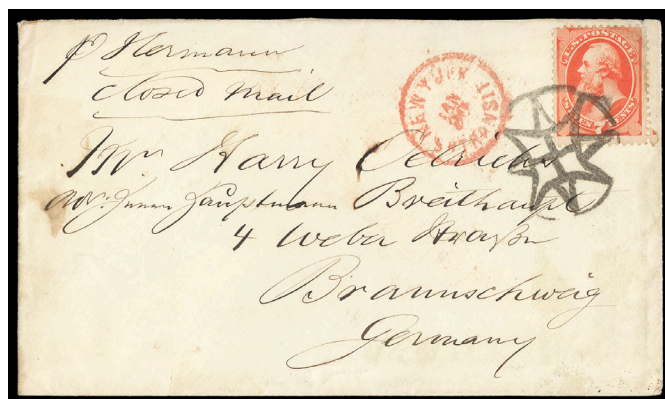 p Hermann
closed mail
U.S. POSTAGE
SEVEN 7 CENTS
NEW YORK TRANSIT
JAN
Mr Harry Oelrichs
adr: Herrn Hauptmann Breithaupt
4 Weber Straße
Braunschweig
Germany